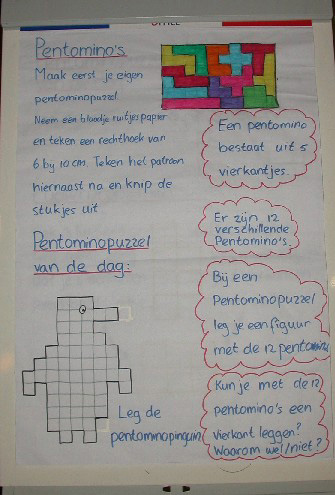 Pentomino's
Maak eerst je eigen
pentominopuzzel
Neem een blaadje ruitjespapier
en teken een rechthoek van
6 bij 10 cm. Teken het patroon
hiernaast na en knip de
stukjes uit
Een pentomino
bestaat uit 5
vierkantjes.
Er zijn 12
verschillende
Pentomino's.
Pentominopuzzel
van de dag:
Bij een
Pentominopuzzel
leg je een figuur
met de 12 pentomino's
Leg de
pentominopinguin
Kun je met de 12
pentomino's een
vierkant leggen?
Waarom wel/niet?